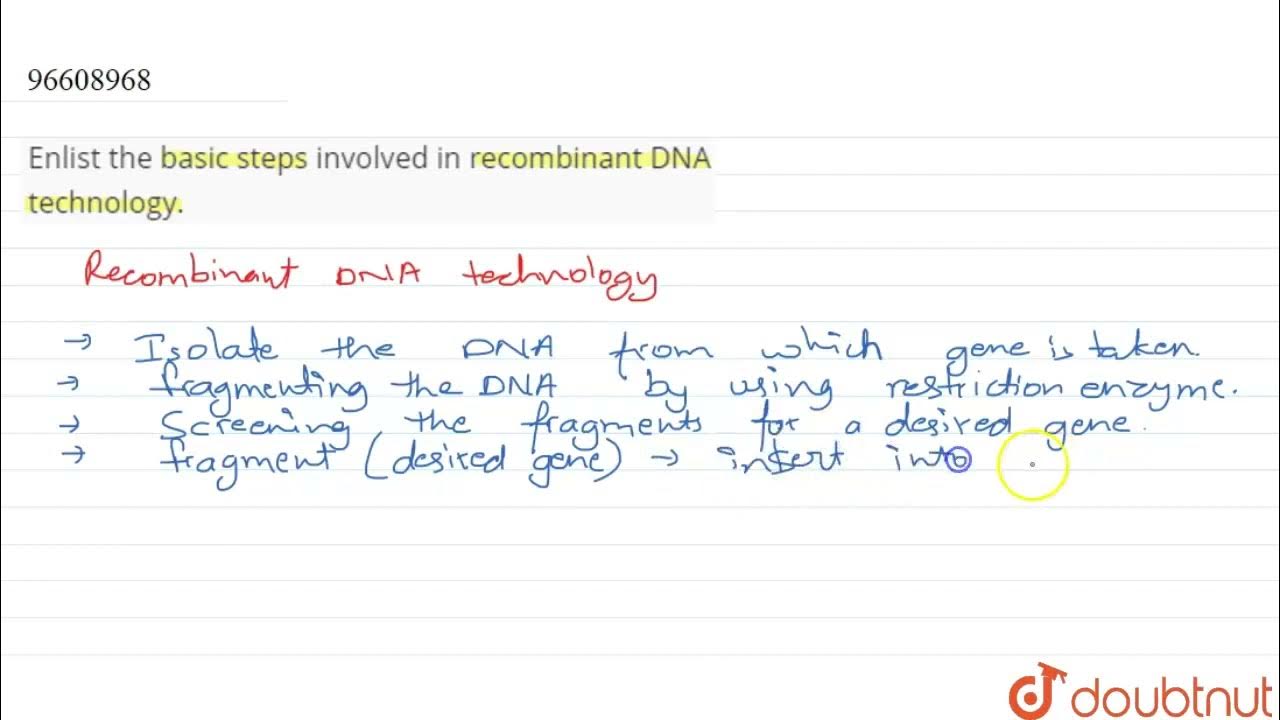 96608968
Enlist the basic steps involved in recombinant DNA
technology.
Recombinant DNA technology
→ Isolate the DNA from which gene is taken.
→ fragmenting the DNA by using restriction enzyme.
→ Screening the fragments for a desired gene.
→ fragment (desired gene) → insert into
doubtnut